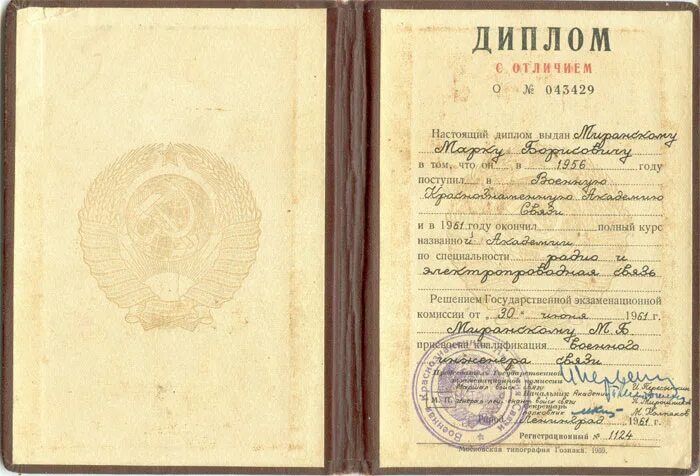 ДИПЛОМ
С ОТЛИЧИЕМ
О № 043429
Настоящий диплом выдан Миранскому
Марку Борисовичу
в том, что он в 1956 году
поступил в Военную
Краснознаменную Академию
Связи
и в 1961 году окончил полный курс
названной Академии
по специальности радио и
электропроводная связь
Решением Государственной экзаменационной
комиссии от "30" июня 1961 г.
Миранскому М.Б.
присвоена квалификация военного
инженера связи
Председатель Государственной
экзаменационной комиссии
Маршал войск связи
И. Пересыпкин
Начальник Академии
М. П.
войск связи
Секретарь
полковник
М. Колпаков
Город Ленинград 1961 г.
Регистрационный № 1124
Московская типография Гознака. 1959.